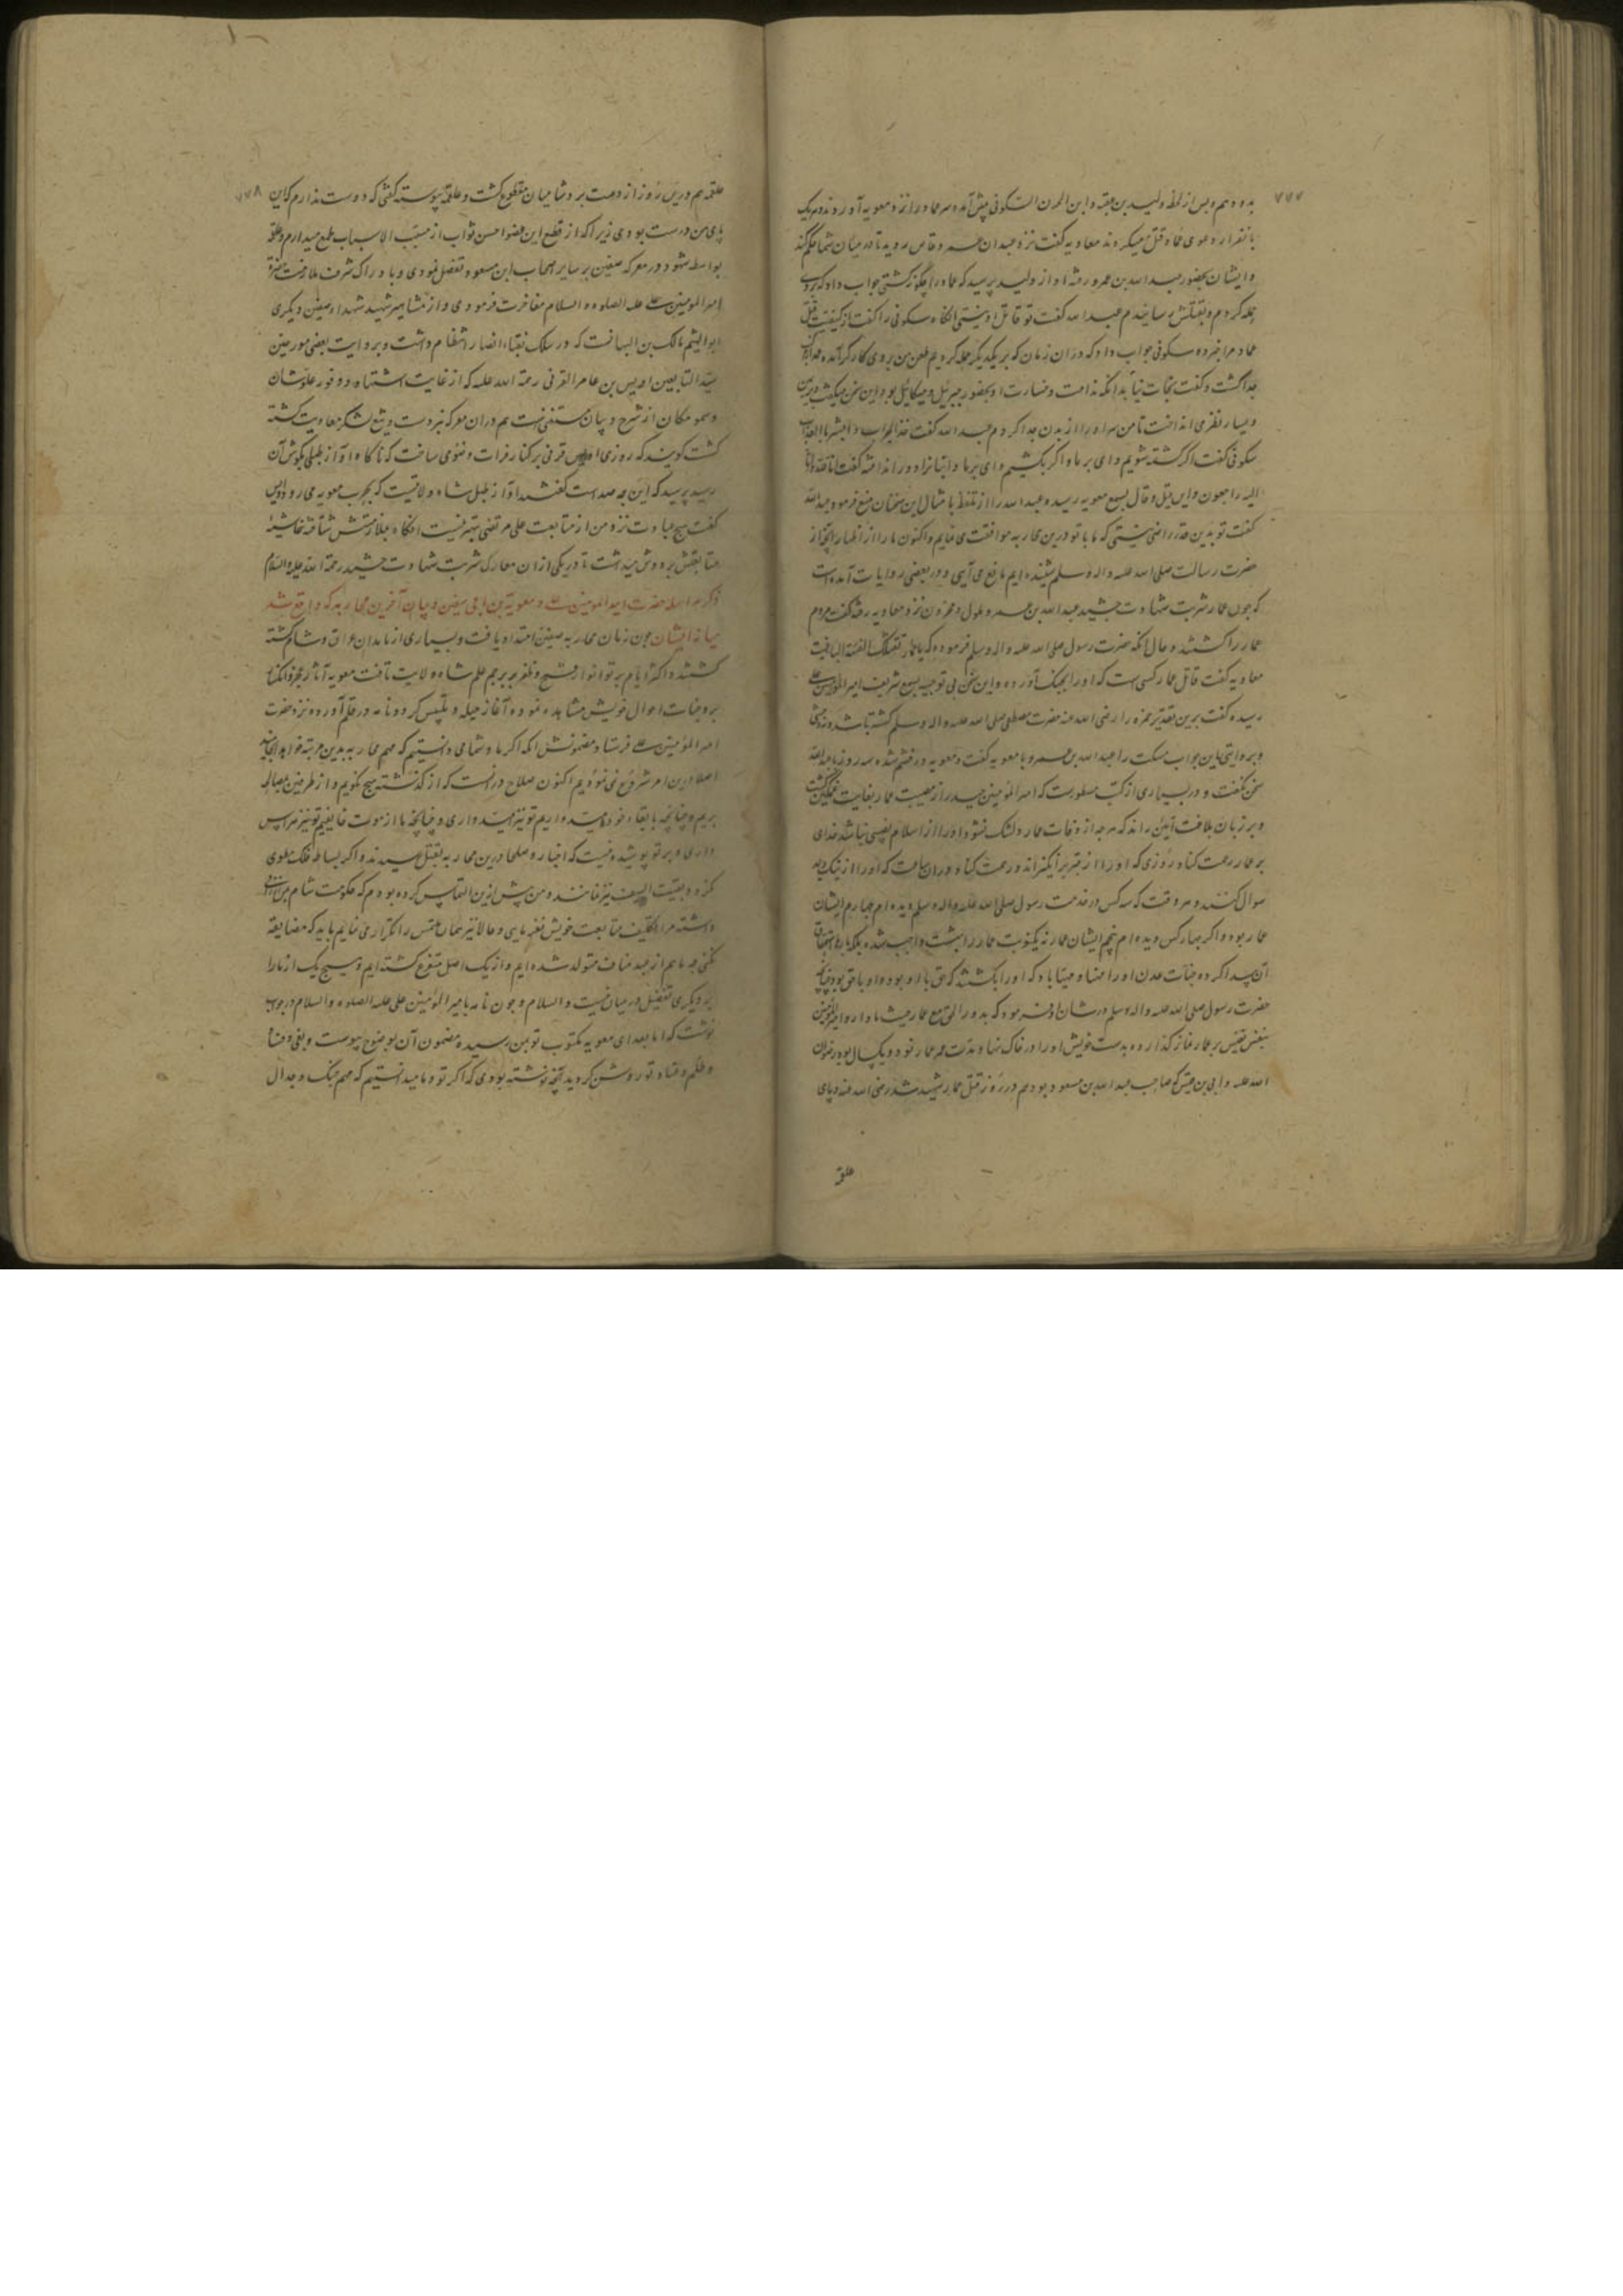 ۷۷۷
بده و هم و پس از لحظه ولید بن عقبه و ابن الجون السکونی پیش آمده سر عمار را نزد معویه آوردند و هر یک
بانفراد دعوی عمار قتل میکردند معاویه گفت نزد عبدالله عمرو عاص روید تا در میان شما حکم کند
و ایشان بحضور عبدالله بن عمرو رفته او از ولید پرسید که عمار را چگونه کشتی جواب داد که بروی
حمله کردم و بقتلش رسانیدم عبدالله گفت تو قاتل او نیستی انگاه سکونی را گفت از کیفیت قتل
عمار مرا خبر ده سکونی جواب داد که در ان زمان که بر یکدیگر حمله کردیم طعن من بروی کارگر آمده
جدا گشت و گفت نجات نیابد انکه ندامت و خسارت او بحضور جبرئیل و میکائیل بود و این سخن میگفت و در یمین
و یسار نظر می انداخت تا من سر او را از بدن جدا کردم عبدالله گفت خذ الجواب و ابشر بالعذاب
سکونی گفت اگر کشته شویم وای بر ما و اگر بکشیم وای بر ما و انباز را دور انداخته گفت انا لله و انا
الیه راجعون و این قیل و قال بسمع معویه رسیده عبدالله را از تلفظ بامثال این سخنان منع فرمود عبدالله
گفت تو بدین قدر راضی نیستی که ما با تو درین محاربه موافقت می نمایم و اکنون ما را از اظهار آنچه از
حضرت رسالت صلی الله علیه و اله و سلم شنیده ایم مانع می آیی و در بعضی روایات آمده است
که چون عمار شربت شهادت چشید عبدالله بن عمرو ملول و محزون نزد معاویه رفته گفت مردم
عمار را کشتند و حال آنکه حضرت رسول صلی الله علیه و اله وسلم فرموده که یا عمار تقتلک الفئة الباغیة
معاویه گفت قاتل عمار کسی است که او را بجنگ آورده و این سخن بی توجیه بسمع شریف امیر المؤمنین علی
رسیده گفت برین تقدیر حمزه را رضی الله عنه حضرت مصطفی صلی الله علیه و اله و سلم کشته باشد نه وحشی
و بروایتی این جواب مسکت را عبدالله بن عمرو با معویه گفت و معویه در خشم شده سه روز با عبدالله
سخن نگفت و در بسیاری از کتب مسطورست که امیر المؤمنین حیدر از مصیبت عمار بغایت غمگین گشت
و بر زبان بلاغت آیین راند که هر که از وفات عمار دلتنگ نشود او را از اسلام نصیبی نباشد خدای
بر عمار رحمت کناد روزی که او را از قبر برانگیزاند و رحمت کناد در ان ساعت که او را از نیک و بد
سوال کنند هر وقت که سه کس در خدمت رسول صلی الله علیه و اله وسلم دیده ام چهارم ایشان
عمار بود و اگر چهار کس دیده ام پنجم ایشان عمار نه یکنوبت عمار را بهشت واجب شده بلکه بارها استحقاق
آن پیدا کرده جنات عدن او را مهنا و مهیا باد که او را بکشتند که حق با او بود و او با حق بود چنانکه
حضرت رسول صلی الله علیه و اله وسلم در شان او فرمود که یدور الحق مع عمار حیث ما دار و امیر المؤمنین
بنفس نفیس بر عمار نماز گذارده بدست خویش او را در خاک نهاد و مدت عمر عمار نود و یکسال بود رضوان
الله علیه و ابی بن قیس که صاحب عبدالله بن مسعود بود هم در روز قتل عمار شهید شد رضی الله عنه و پای
علقمه
۷۷۸
علقمه هم درین روز از دست برد شامیان مقطوع گشت و علقمه پیوسته گفتی که دوست ندارم که این
پای من درست بودی زیرا که از قطع این عضو احسن ثواب از مسبب الاسباب طمع میدارم و علقمه
بواسطه شهود در معرکه صفین بر سایر اصحاب ابن مسعود تفضل نمودی و بادراک شرف ملازمت حضرة
امیر المؤمنین علی علیه الصلوه و السلام مفاخرت فرمودی و از مشاهیر شهید شهداء صفین دیگری
ابوالهیثم مالک بن التیهانست که در سلک نقباء انصار انتظام داشت و بروایت بعضی مورخین
سید التابعین اویس بن عامر القرنی رحمة الله علیه که از غایت اشتهار و وفور علو شان
و سمو مکان از شرح و بیان مستغنی است هم دران معرکه نبردست و تیغ لشکر معاویت کشته
گشت گویند که روزی اویس قرنی بر کنار فرات وضوئی ساخت که ناگاه اواز طبلی بگوش آن
رسید پرسید که این چه صداست گفتند آواز طبل شاه ولایتست که بحرب معویه می رود اویس
گفت هیچ عبادت نزد من از متابعت علی مرتضی بهتر نیست انگاه بملازمتش شتافته غاشیه
متابعتش بر دوش میداشت تا در یکی از ان معارک شربت شهادت چشید رحمة الله علیه و السلام
ذکر مراسله حضرت امیر المؤمنین علی و معویة بن ابی سفین و بیان آخرین محاربه که واقع شد
میانه ایشان چون زمان محاربه صفین امتداد یافت و بسیاری از نامداران عراق و شام کشته
گشتند و اکثر ایام پرتو انوار فتح و ظفر بر پرچم علم شاه ولایت تافت معویه آثار عجز و انکسار
بر وجنات احوال خویش مشاهده نموده آغاز حیله و تلبیس کرد و نامه در قلم آورده نزد حضرت
امیر المؤمنین علی فرستاد مضمونش انکه اگر ما و شما می دانستیم که مهم محاربه بدین مرتبه خواهد انجامید
اصلا درین امر شروع نمی نمودیم اکنون صلاح درانست که از گذشته هیچ نگویم و از طرفین مصالحه
بریم و چنانچه ما ببقاء خود امیدواریم تو نیز امیدواری و چنانچه ما از موت خایفیم تو نیز هراس
داری و بر تو پوشیده نیست که اخیار و صلحا درین محاربه بقتل رسیدند و اگر بساط جنگ مطوی
نگردد بقیت السیف نیز نمانند و من پیش ازین التماس کرده بودم که حکومت شام بمن ارزانی
داشته مرا تکلیف متابعت خویش نفرمایی و حالا نیز همان ملتمس را تکرار می نمایم باید که مضایقه
نکنی چه ما هم از عبد مناف متولد شده ایم و از یک اصل متفرع گشته ایم و هیچ یک از ما را
بر دیگری تفضیل در میان نیست و السلام و چون نامه بامیر المؤمنین علی علیه الصلوه و السلام در جواب
نوشت که اما بعد ای معویه مکتوب تو بمن رسیده مضمون آن بوضوح پیوست و بغی و فساد
و ظلم و عناد تو روشن گردید آنچه نوشته بودی که اگر تو و ما میدانستیم که مهم جنگ و جدال